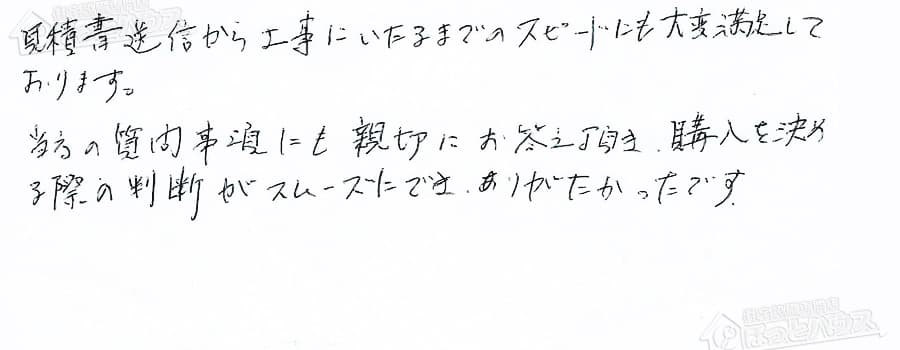 見積書送信から工事にいたるまでのスピードにも大変満足して
おります。
当方の質問事項にも親切にお答え頂き、購入を決め
る際の判断がスムーズにでき、ありがたかったです。
住宅設備専門店
ほっとハウス